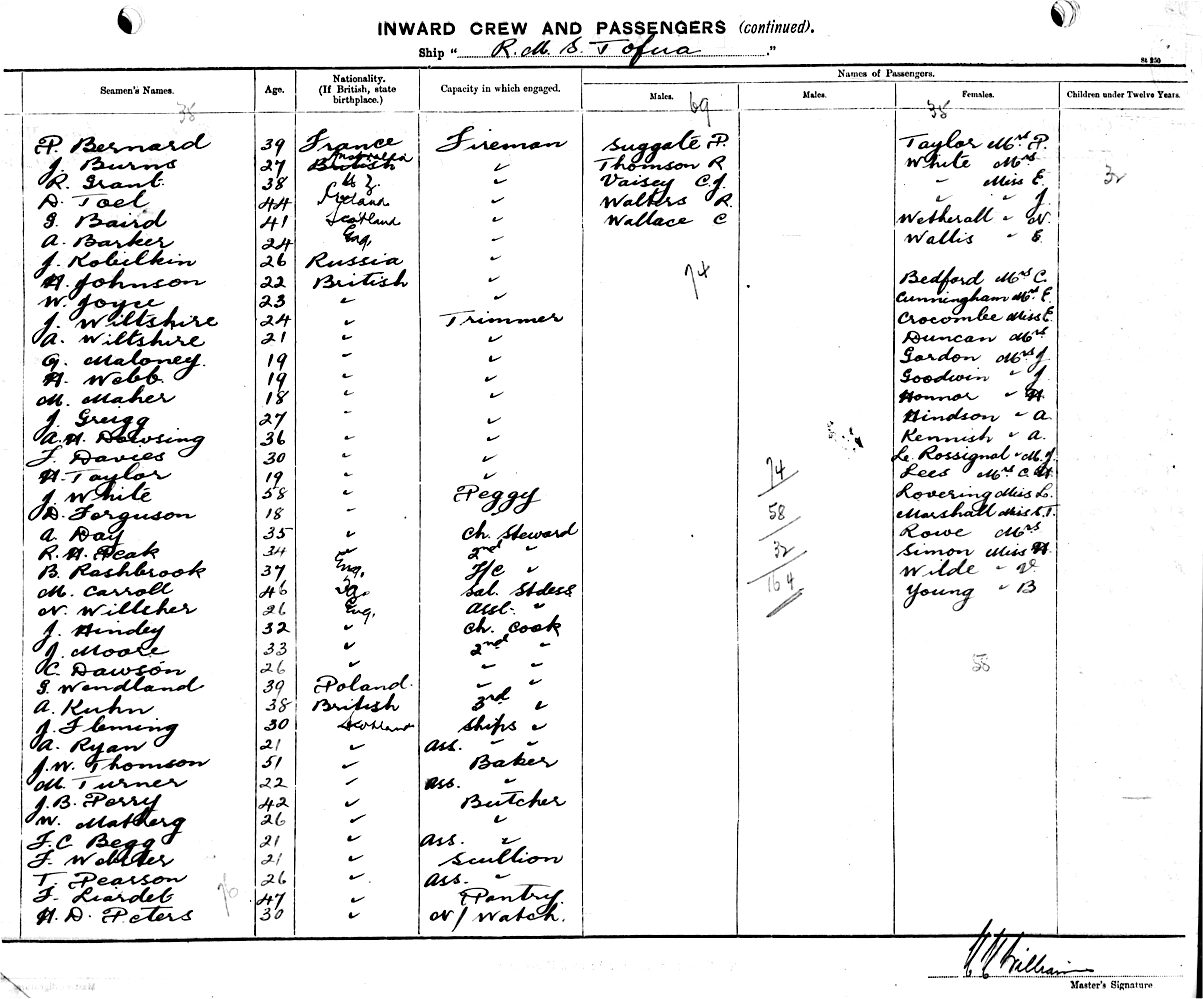 INWARD CREW AND PASSENGERS (continued).
Ship " R. M. S. Tofua "
St 250
Names of Passengers.
Seamen's Names. Age. Nationality. (If British, state birthplace.) Capacity in which engaged. Males. Males. Females. Children under Twelve Years.
38 69 38
P. Bernard 39 France Fireman Suggate P. Taylor Mrs P.
J. Burns 27 British Australia " Thomson R White Mrs
R. Grant 38 N Z. " Vaisey C.J. " Miss E. 32
D. Toel 44 Ireland " Walters R. " " J
G. Baird 41 Scotland " Wallace C Wetherall " N.
A. Barker 24 Eng. " Wallis " E.
J. Kobilkin 26 Russia "
H. Johnson 22 British " 74 Bedford Mrs C.
W. Joyce 23 " " Cunningham Mrs E.
J. Wiltshire 24 " Trimmer Crocombe Miss E.
A. Wiltshire 21 " " Duncan Mrs
G. Maloney. 19 " " Gordon Mrs J.
H. Webb. 19 " " Goodwin " J
M. Maher 18 " " Honnor " H
J. Greigg 27 " " Hindson " A.
A.H. Dowsing 36 " " Kennish " A.
F. Davies 30 " " Le. Rossignol " M.J.
H. Taylor 19 " " 74 Lees Mrs C.H.
J. White 58 " Peggy Lovering Miss L.
D. Ferguson 18 " " 58 Marshall Miss S.T.
A. Day 35 " Ch. Steward Rowe Mrs
R. H. Peak 34 " 2nd " 32 Simon Miss H.
B. Rashbrook 37 Eng. F/C " Wilde "
M. Carroll 46 Sal. Stdess 164 Young " B
N. Willsher 26 Eng. Asst. "
J. Hindey 32 " Ch. Cook
J. Moore 33 " 2nd "
C. Dawson 26 " " " 58
G. Wendland 39 Poland. " "
A. Kuhn 38 British 3rd "
J. Fleming 30 Scotland Ships "
A. Ryan 21 " Ass. " "
J.W. Thomson 51 " Baker
M. Turner 22 " Ass. "
J.B. Perry 42 " Butcher
W. 26 " "
F.C Begg 21 " Ass. "
F. Webster 21 " Scullion
T. Pearson 26 " Ass. "
F. Liardet 76 47 " Pantry.
H. D. Peters 30 " N/ Watch.
Master's Signature